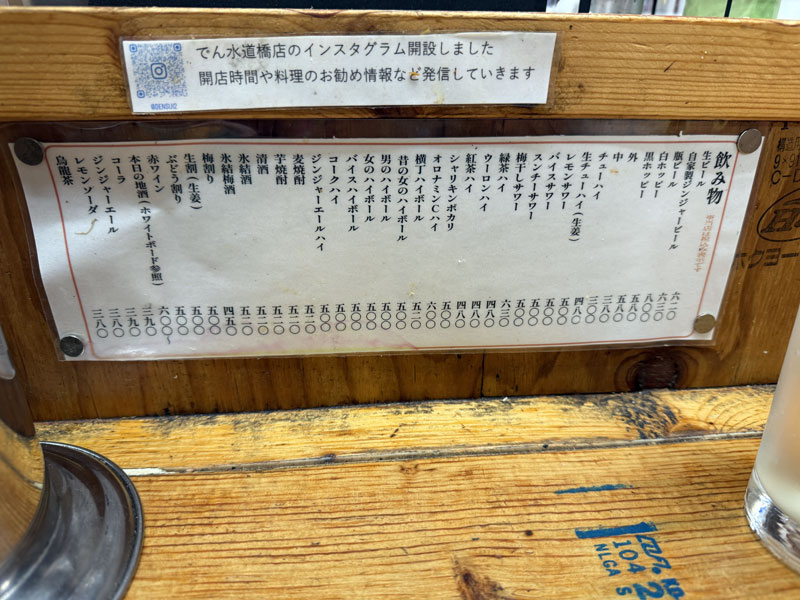 でん水道橋店のインスタグラム開設しました
開店時間や料理のお勧め情報など発信していきます
@DENSUI2
飲み物
生ビール 六二〇
自家製ジンジャービール 六三〇
瓶ビール 八三〇
白ホッピー 五八〇
黒ホッピー 五八〇
外 三八〇
中 三〇〇
チューハイ 四八〇
生チューハイ(生姜) 五〇〇
レモンサワー 五〇〇
バイスサワー 五〇〇
スンチーサワー 五〇〇
梅干しサワー 六三〇
緑茶ハイ 四八〇
ウーロンハイ 四八〇
紅茶ハイ 四八〇
シャリキンポカリ 五〇〇
オロナミンCハイ 六〇〇
横丁ハイボール 五二〇
昔の女のハイボール 五〇〇
男のハイボール 五〇〇
女のハイボール 五〇〇
バイスハイボール 五〇〇
コークハイ 五〇〇
ジンジャーエールハイ 五〇〇
麦焼酎 五二〇
芋焼酎 五二〇
清酒 五二〇
氷結酒 五二〇
氷結梅酒 五二〇
梅割り 四五〇
生割(生姜) 五〇〇
ぶどう割り 五〇〇
赤ワイン 五〇〇
本日の地酒(ホワイトボード参照) 六〇〇～
コーラ 三九〇
ジンジャーエール 三九〇
レモンソーダ 三八〇
烏龍茶 三八〇
104
NLGA S